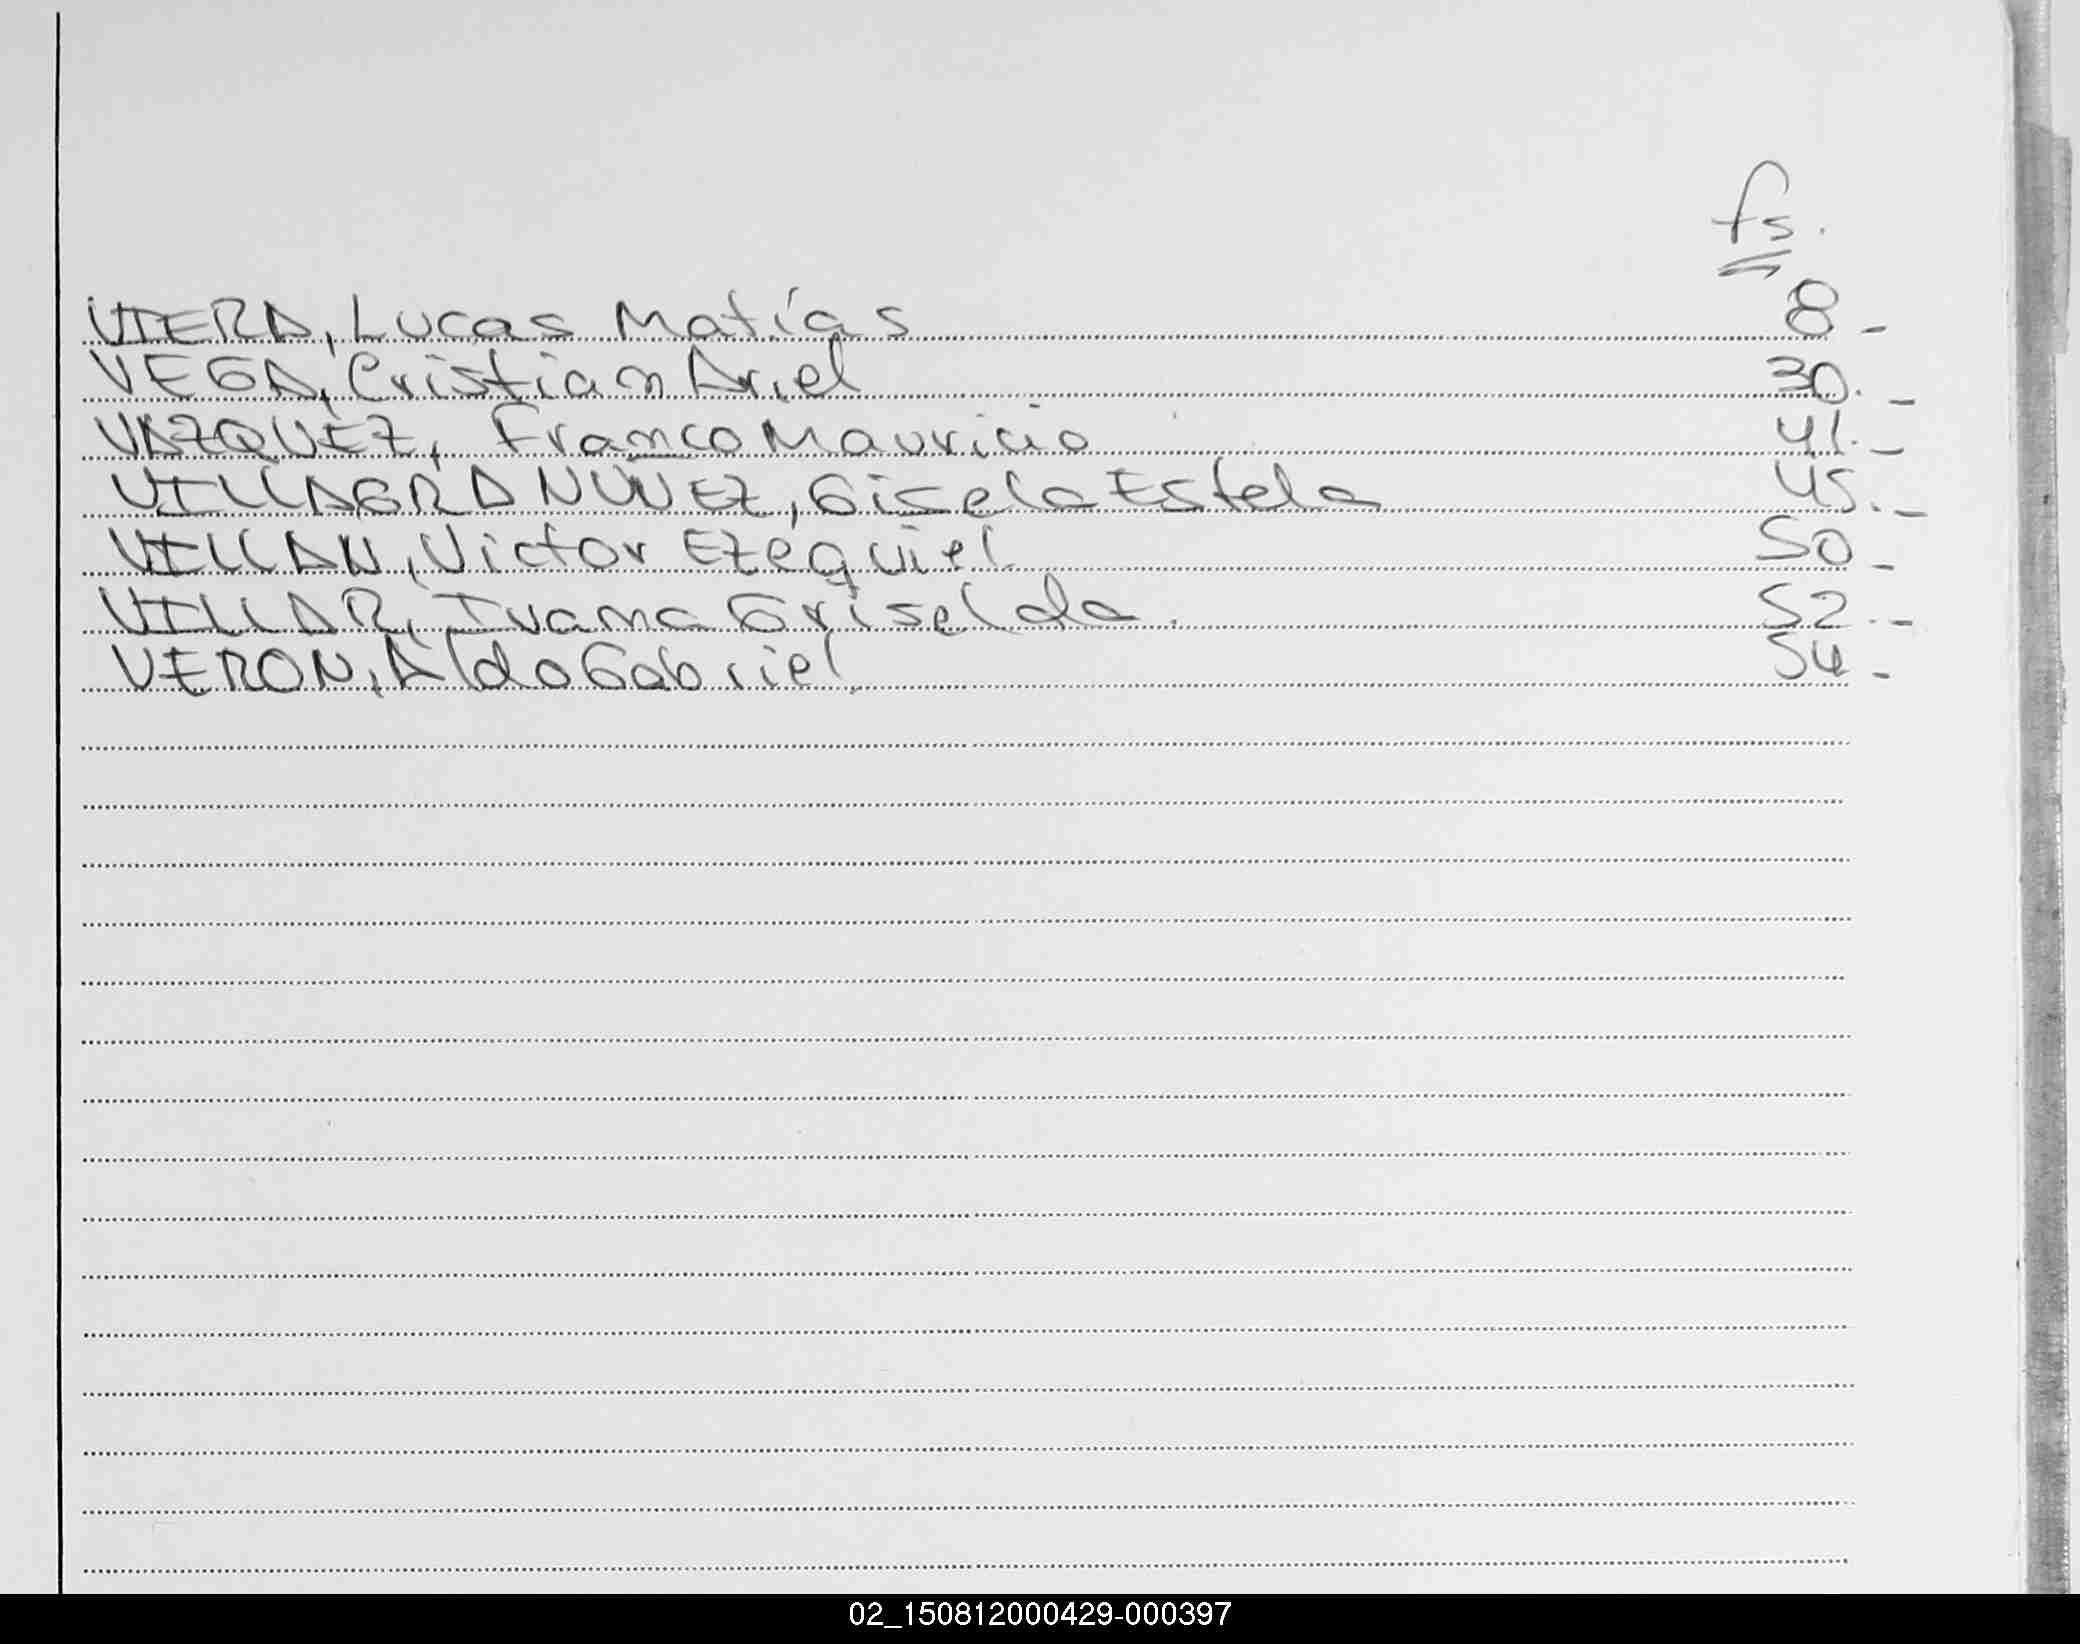 fs.
VIERA, Lucas Matías 8-
VEGA, Cristian Ariel 30.-
VAZQUEZ, Franco Mauricio 41.-
VILLAGRA NUÑEZ, Gisela Estela 45.-
VILLAN, Victor Ezequiel 50-
VILLAR, Ivana Griselda. 52.-
VERON, Aldo Gabriel. 54-
02_150812000429-000397